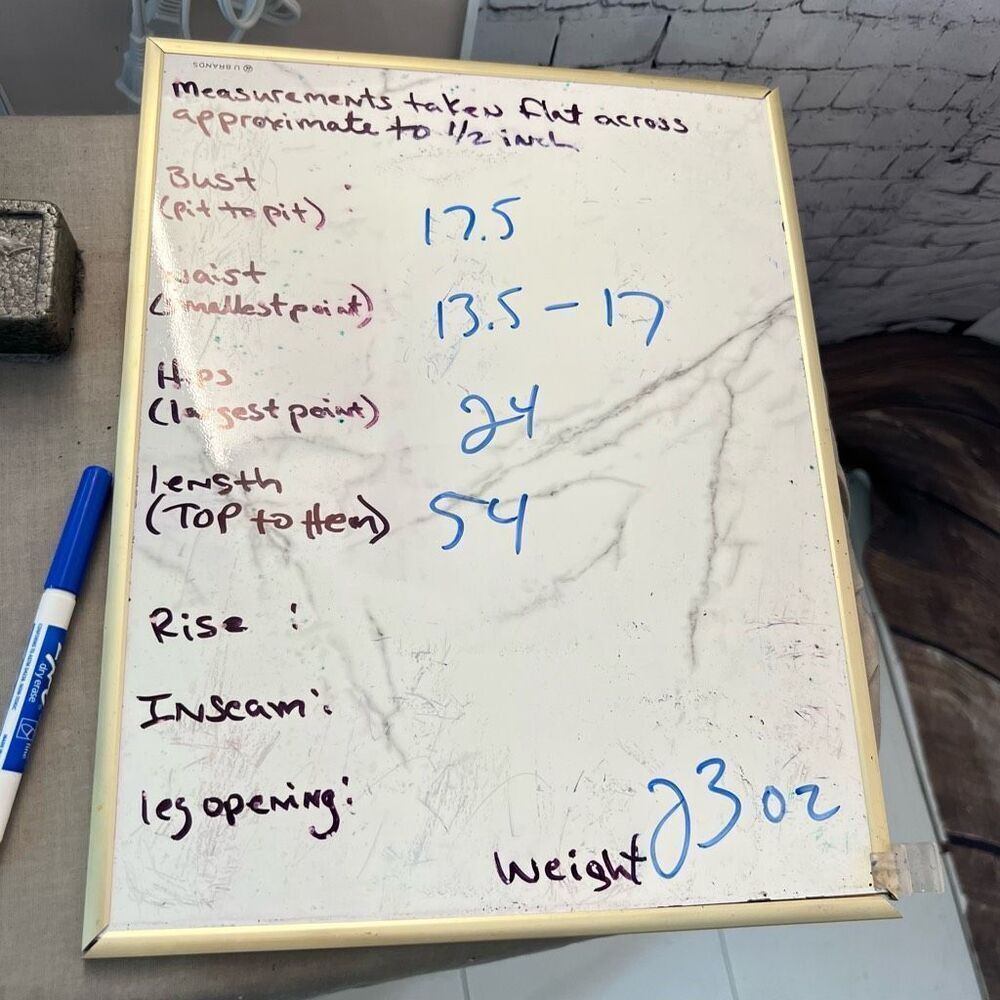 U BRANDS
Measurements taken flat across
approximate to 1/2 inch
Bust
(pit to pit) : 17.5
waist
(smallest point) 13.5 - 17
Hips
(largest point) 24
length
(TOP to Hem) 54
Rise :
Inseam :
leg opening :
Weight 23 oz
dry erase